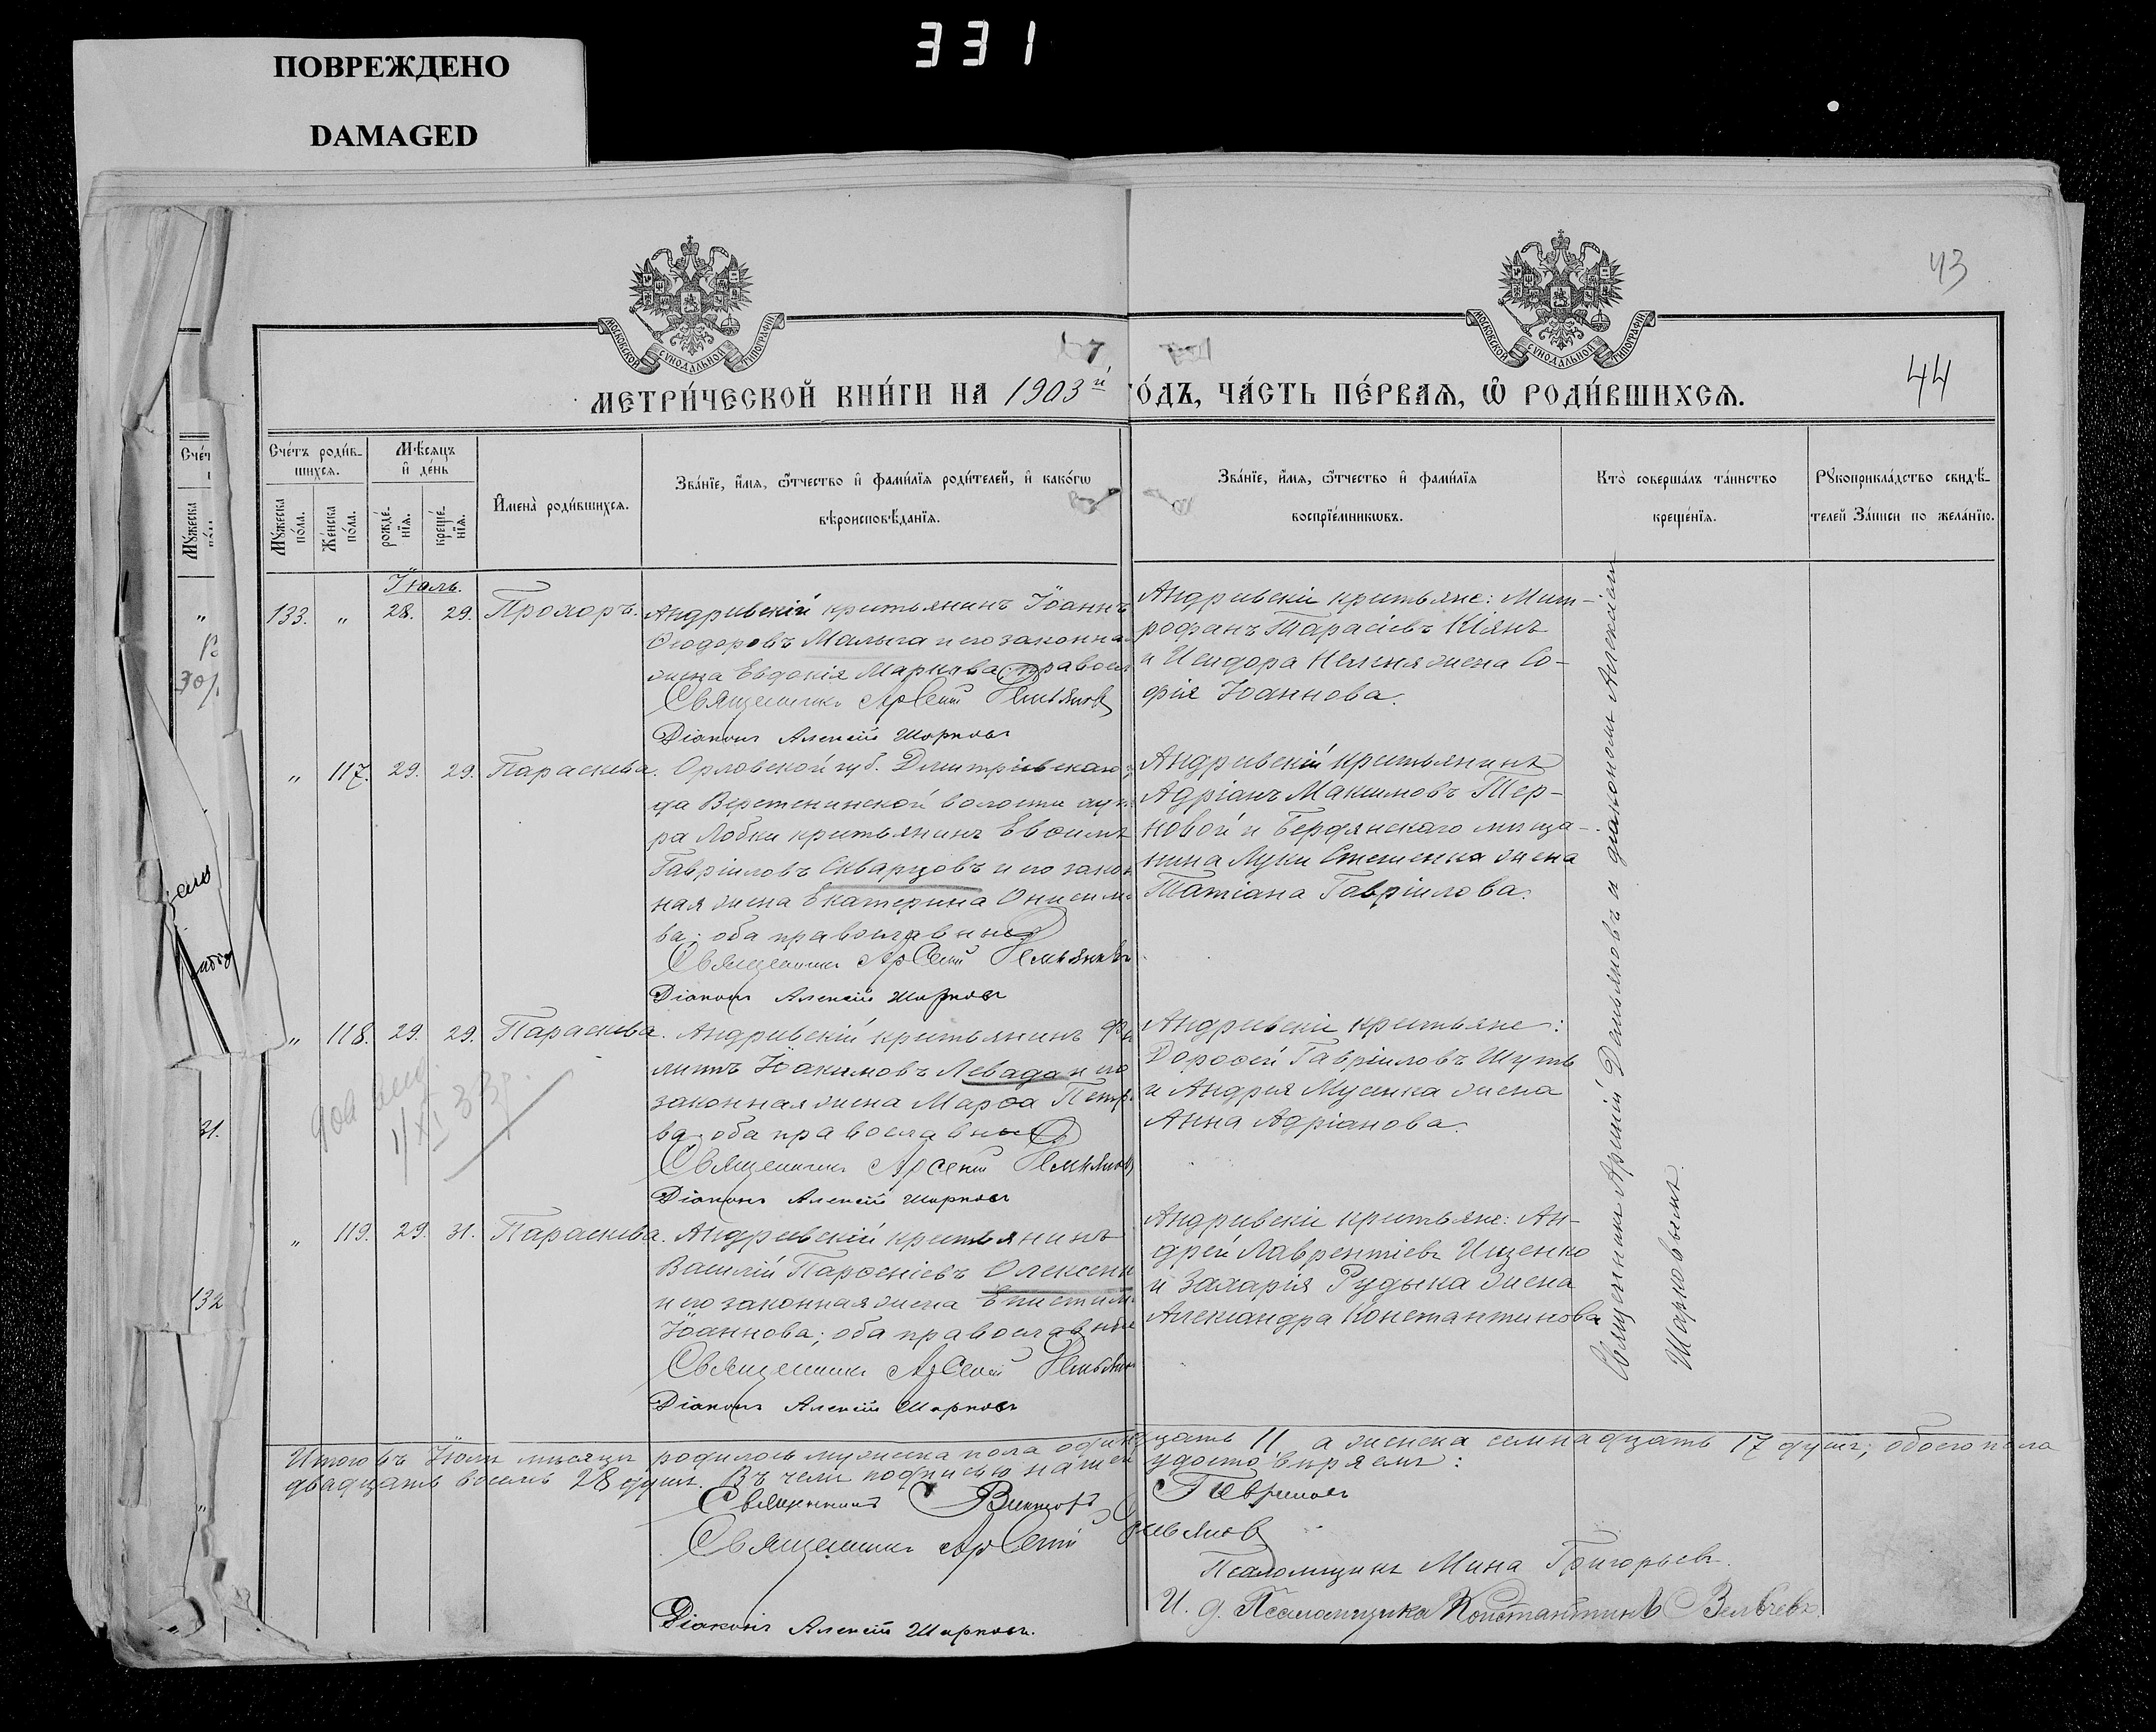 ПОВРЕЖДЕНО
DAMAGED
331
43
МОСКОВСКОЙ СѴНОДАЛЬНОЙ ТИПОГРАФІИ
МОСКОВСКОЙ СѴНОДАЛЬНОЙ ТИПОГРАФІИ
44
МЕТРИ́ЧЕСКОЙ КНИ́ГИ НА 1903й ГО́ДЪ, ЧА́СТЬ ПЕ́РВАѦ, Ѽ РОДИ́ВШИХСѦ.
Сче́тъ роди́вшихсѧ.
Мѣ́сѧцъ и҆ де́нь
Мꙋ́жеска по́ла.
Же́нска по́ла.
рожде́нїѧ.
креще́нїѧ.
И҆мена̀ роди́вшихсѧ.
Зва́нїе, и҆́мѧ, ѻ҆́тчество и҆ фами́лїѧ роди́телей, и҆ како́гѡ
вѣроисповѣ́данїѧ.
Зва́нїе, и҆́мѧ, ѻ҆́тчество и҆ фами́лїѧ
воспрїе́мникѡвъ.
Кто̀ соверша́лъ та́инство
креще́нїѧ.
Рꙋкоприкла́дство свидѣ́-
телей За́писи по жела́нїю.
Іюль.
133. " 28. 29. Прохоръ.
Андреевскій крестьянинъ Іоаннъ
Ѳеодоровъ Малыга и его законна
жена Евдокія Маркова; правосл
Священникъ Арсеній Демьяновъ
Діаконъ Алексій Шарковъ
Андреевскіе крестьяне: Мит-
рофанъ Тарасіевъ Кіянъ
и Исидора жена Со-
фія Іоаннова.
" 117. 29. 29. Параскева.
Орловской губ. Дмитріевскаго у
да Веретенинской волости
ра Лобки крестьянинъ Евѳимъ
Гавріиловъ Скварцовъ и его закон
ная жена Екатерина Онисимо
ва; оба православные
Священникъ Арсеній Демьяновъ
Діаконъ Алексій Шарковъ
Андреевскій крестьянинъ
Адріанъ Максимовъ Тер-
новой и Бердянскаго мѣща-
нина Луки Стешенка жена
Татіана Гавріилова.
" 118. 29. 29. Параскева.
Андреевскій крестьянинъ Фи
липпъ Іоакимовъ Левада и его
законная жена Марѳа Петр
ва; оба православные
Священникъ Арсеній Демьяновъ
Діаконъ Алексій Шарковъ
Андреевскіе крестьяне:
Дороѳей Гавріиловъ Шуть
и Андрея Мусенка жена
Анна Адріанова.
" 119. 29. 31. Параскева.
Андреевскій крестьянинъ
Василій Парѳеніевъ Олексен
и его законная жена Епистим
Іоаннова; оба православные
Священникъ Арсеній Демьянов
Діаконъ Алексій Шарковъ
Андреевскіе крестьяне: Ан-
дрей Лаврентіевъ Ищенко
и Захарія Рудыка жена
Александра Константинова
Священникъ Арсеній Демьяновъ и діакономъ Алексіемъ
Шарковымъ.
31.
132
Итого въ Іюлѣ мѣсяцѣ родилось мужеска пола одиннадцать 11 а женска семнадцать 17 душъ; обоего пола
двадцать восемь 28 душъ. Въ чемъ подписью нашею удостовѣряемъ:
Священникъ Викторъ Гавриловъ
Священникъ Арсеній Демьяновъ
Псаломщикъ Мина Григорьевъ.
Діаконъ Алексій Шарковъ.
И. д. Псаломщика Константинъ Величевъ.